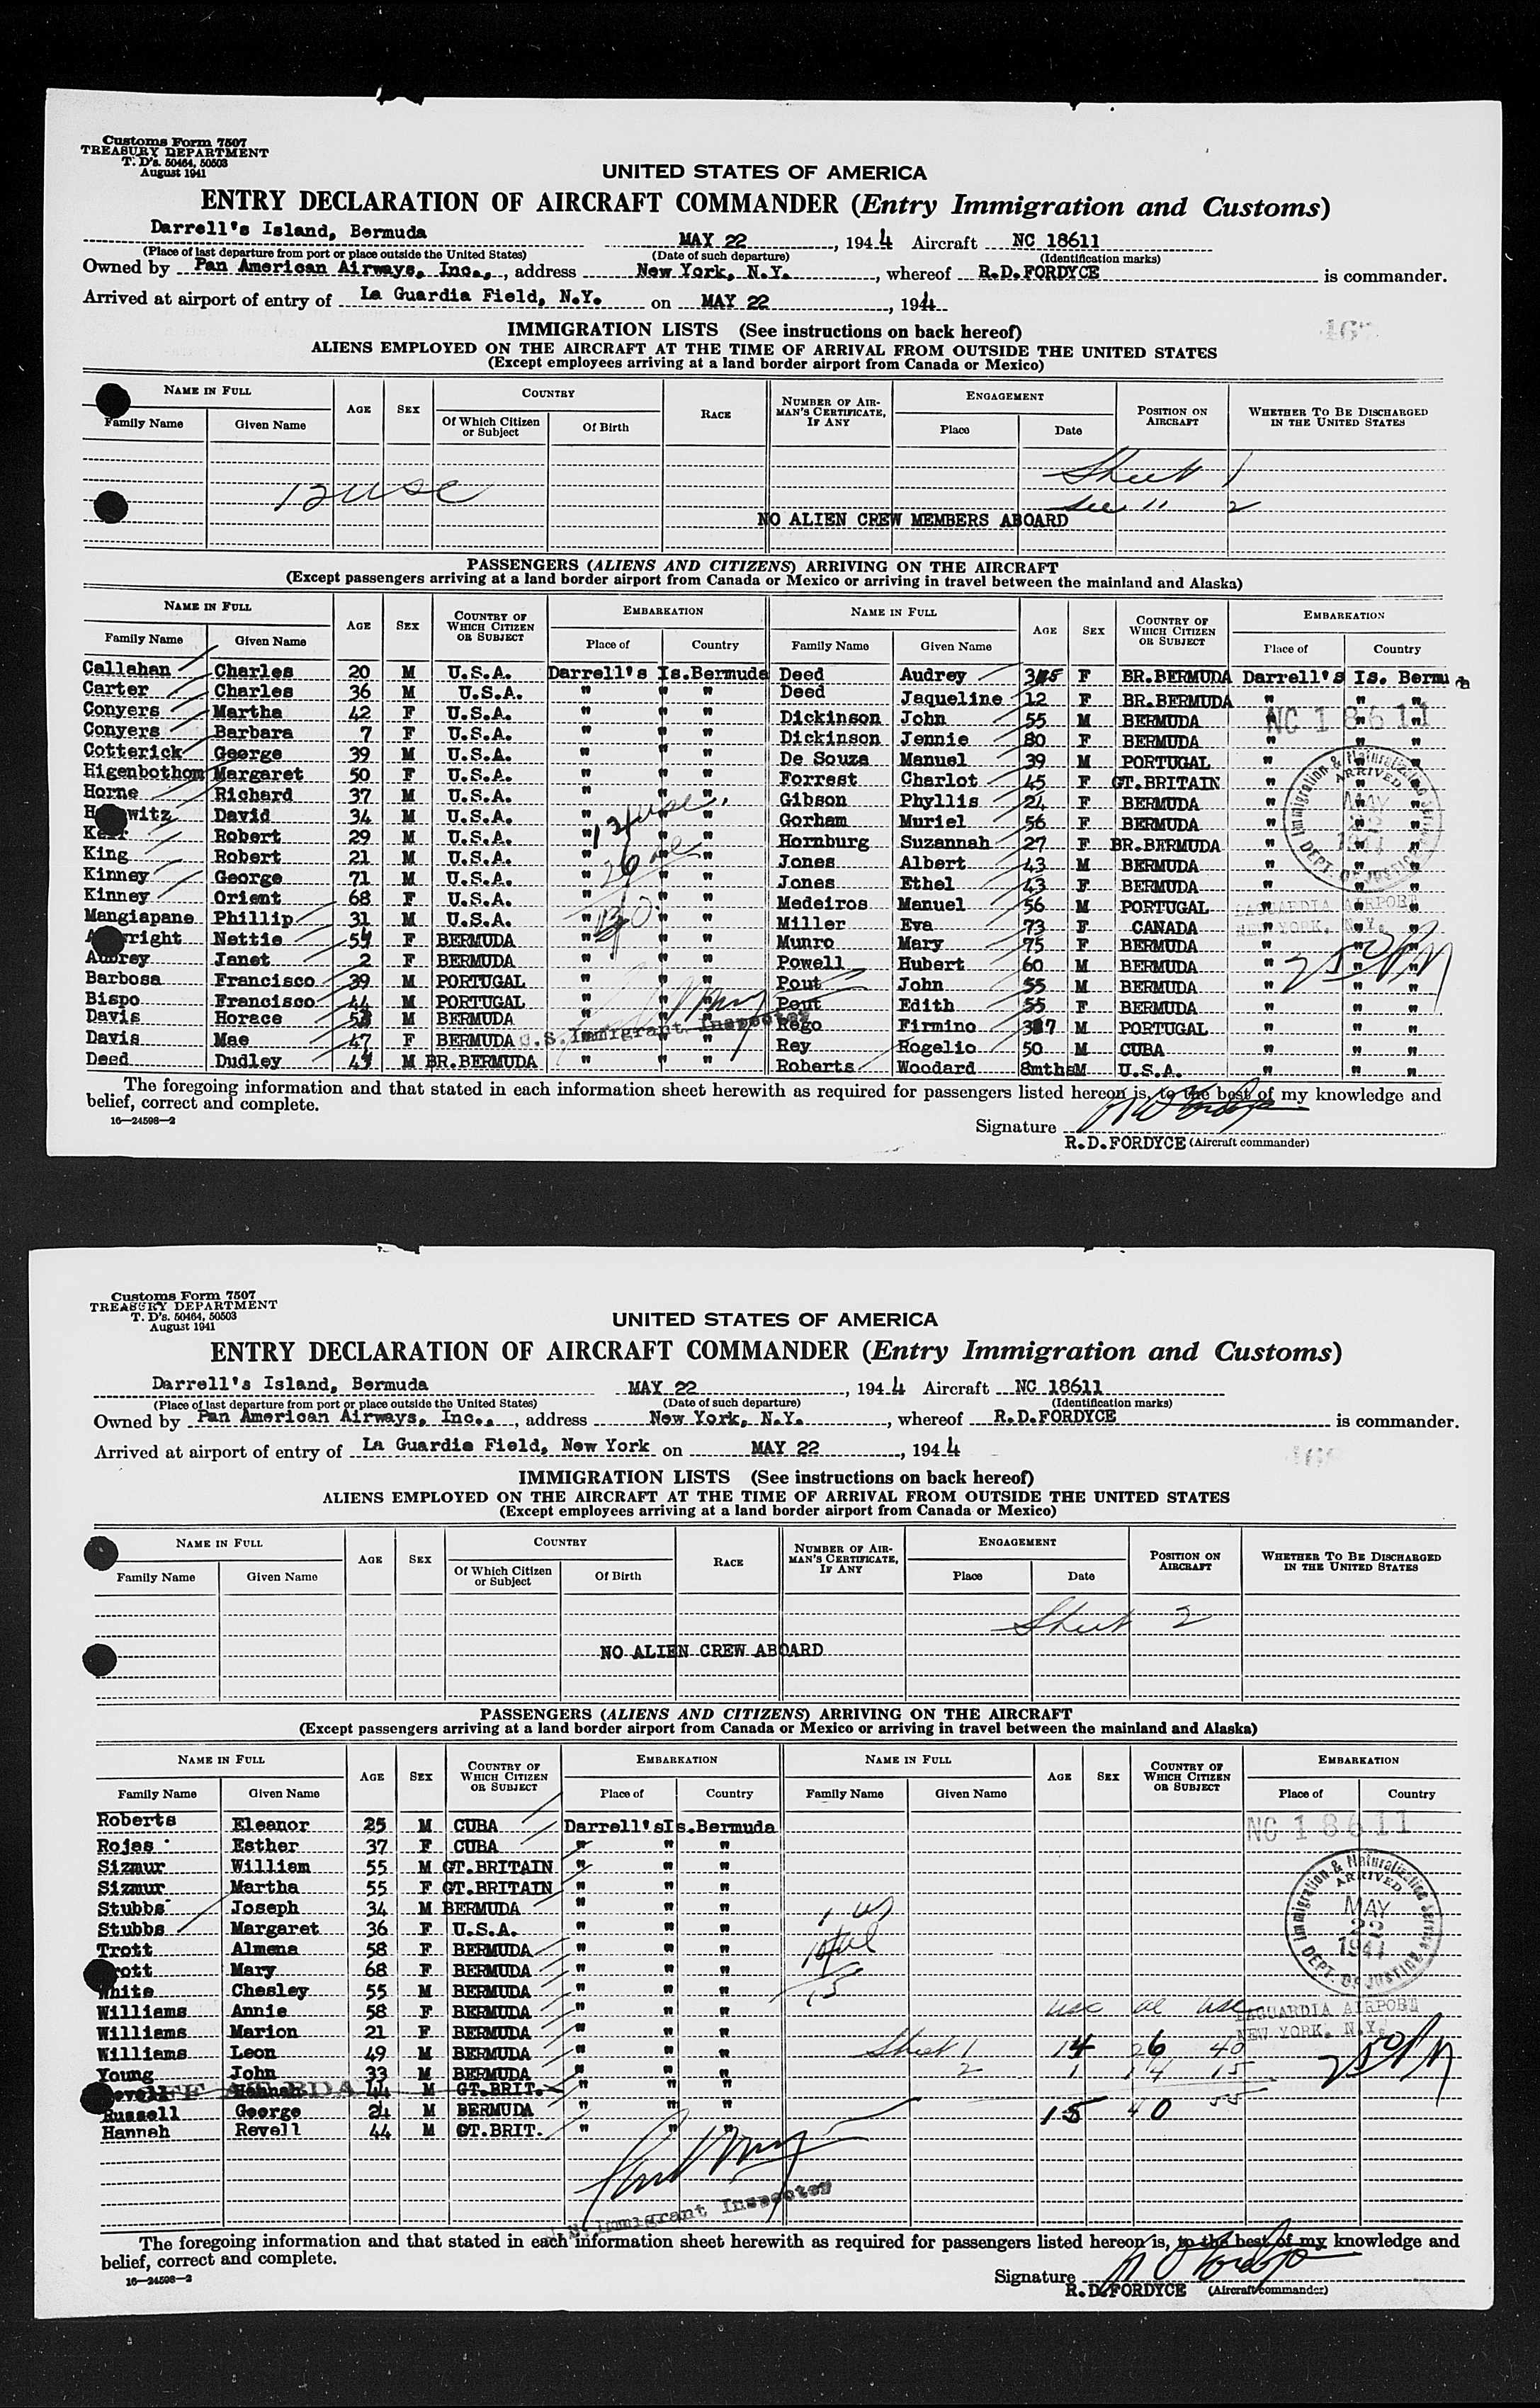 Customs Form 7507
TREASURY DEPARTMENT
T. D's. 50464, 50503
August 1941
UNITED STATES OF AMERICA
ENTRY DECLARATION OF AIRCRAFT COMMANDER (Entry Immigration and Customs)
Darrell's Island, Bermuda MAY 22, 1944 Aircraft NC 18611
(Place of last departure from port or place outside the United States) (Date of such departure) (Identification marks)
Owned by Pan American Airways, Inc., address New York, N.Y., whereof R.D.FORDYCE is commander.
Arrived at airport of entry of La Guardia Field, N.Y. on MAY 22, 1944
IMMIGRATION LISTS (See instructions on back hereof)
ALIENS EMPLOYED ON THE AIRCRAFT AT THE TIME OF ARRIVAL FROM OUTSIDE THE UNITED STATES
(Except employees arriving at a land border airport from Canada or Mexico)
NAME IN FULL AGE SEX COUNTRY RACE NUMBER OF AIRMAN'S CERTIFICATE, IF ANY ENGAGEMENT POSITION ON AIRCRAFT WHETHER TO BE DISCHARGED IN THE UNITED STATES
Family Name Given Name Of Which Citizen or Subject Of Birth Place Date
Sheet 1
See " 2
NO ALIEN CREW MEMBERS ABOARD
PASSENGERS (ALIENS AND CITIZENS) ARRIVING ON THE AIRCRAFT
(Except passengers arriving at a land border airport from Canada or Mexico or arriving in travel between the mainland and Alaska)
NAME IN FULL AGE SEX COUNTRY OF WHICH CITIZEN OR SUBJECT EMBARKATION NAME IN FULL AGE SEX COUNTRY OF WHICH CITIZEN OR SUBJECT EMBARKATION
Family Name Given Name Place of Country Family Name Given Name Place of Country
Callahan Charles 20 M U.S.A. Darrell's Is.Bermuda Deed Audrey F BR.BERMUDA Darrell's Is. Bermu
Carter Charles 36 M U.S.A. " " " Deed Jaqueline 12 F BR.BERMUDA " " "
Conyers Martha 42 F U.S.A. " " " Dickinson John 55 M BERMUDA " " "
Conyers Barbara 7 F U.S.A. " " " Dickinson Jennie 80 F BERMUDA " " "
Cotterick George 39 M U.S.A. " " " De Souza Manuel 39 M PORTUGAL " " "
Higenbothom Margaret 50 F U.S.A. " " " Forrest Charlot 45 F GT.BRITAIN " " "
Horne Richard 37 M U.S.A. " " " Gibson Phyllis 24 F BERMUDA " " "
H witz David 34 M U.S.A. " " " Gorham Muriel 56 F BERMUDA " " "
Robert 29 M U.S.A. " " " Hornburg Suzannah 27 F BR.BERMUDA " " "
King Robert 21 M U.S.A. " " " Jones Albert 43 M BERMUDA " " "
Kinney George 71 M U.S.A. " " " Jones Ethel 43 F BERMUDA " " "
Kinney Orient 68 F U.S.A. " " " Medeiros Manuel 56 M PORTUGAL " " "
Mangiapane Phillip 31 M U.S.A. " " " Miller Eva 73 F CANADA " " "
A wright Nettie 54 F BERMUDA " " " Munro Mary 75 F BERMUDA " " "
Aubrey Janet 2 F BERMUDA " " " Powell Hubert 60 M BERMUDA " " "
Barbosa Francisco 39 M PORTUGAL " " " Pout John 55 M BERMUDA " " "
Bispo Francisco 44 M PORTUGAL " " " Pout Edith 55 F BERMUDA " " "
Davis Horace M BERMUDA " " " Rego Firmino M PORTUGAL " " "
Davis Mae 47 F BERMUDA " " " Rey Rogelio 50 M CUBA " " "
Deed Dudley M BR.BERMUDA " " " Roberts Woodard 8mths M U.S.A. " " "
NC 18611
Immigration & Naturalization Service
ARRIVED
MAY 22 1944
DEPT. OF JUSTICE
LAGUARDIA AIRPORT
NEW YORK, N.Y.
U.S. Immigrant Inspector
The foregoing information and that stated in each information sheet herewith as required for passengers listed hereon is, to the best of my knowledge and
belief, correct and complete.
16—24598—2
Signature
R.D.FORDYCE (Aircraft commander)
Customs Form 7507
TREASURY DEPARTMENT
T. D's. 50464, 50503
August 1941
UNITED STATES OF AMERICA
ENTRY DECLARATION OF AIRCRAFT COMMANDER (Entry Immigration and Customs)
Darrell's Island, Bermuda MAY 22, 1944 Aircraft NC 18611
(Place of last departure from port or place outside the United States) (Date of such departure) (Identification marks)
Owned by Pan American Airways, Inc., address New York, N.Y., whereof R.D.FORDYCE is commander.
Arrived at airport of entry of La Guardia Field, New York on MAY 22, 1944
IMMIGRATION LISTS (See instructions on back hereof)
ALIENS EMPLOYED ON THE AIRCRAFT AT THE TIME OF ARRIVAL FROM OUTSIDE THE UNITED STATES
(Except employees arriving at a land border airport from Canada or Mexico)
NAME IN FULL AGE SEX COUNTRY RACE NUMBER OF AIRMAN'S CERTIFICATE, IF ANY ENGAGEMENT POSITION ON AIRCRAFT WHETHER TO BE DISCHARGED IN THE UNITED STATES
Family Name Given Name Of Which Citizen or Subject Of Birth Place Date
Sheet 2
NO ALIEN CREW ABOARD
PASSENGERS (ALIENS AND CITIZENS) ARRIVING ON THE AIRCRAFT
(Except passengers arriving at a land border airport from Canada or Mexico or arriving in travel between the mainland and Alaska)
NAME IN FULL AGE SEX COUNTRY OF WHICH CITIZEN OR SUBJECT EMBARKATION NAME IN FULL AGE SEX COUNTRY OF WHICH CITIZEN OR SUBJECT EMBARKATION
Family Name Given Name Place of Country Family Name Given Name Place of Country
Roberts Eleanor 25 M CUBA Darrell'sIs.Bermuda
Rojas Esther 37 F CUBA " " "
Sizmur William 55 M GT.BRITAIN " " "
Sizmur Martha 55 F GT.BRITAIN " " "
Stubbs Joseph 34 M BERMUDA " " "
Stubbs Margaret 36 F U.S.A. " " "
Trott Almena 58 F BERMUDA " " "
rott Mary 68 F BERMUDA " " "
White Chesley 55 M BERMUDA " " "
Williams Annie 58 F BERMUDA " " "
Williams Marion 21 F BERMUDA " " "
Williams Leon 49 M BERMUDA " " "
Young John 33 M BERMUDA " " "
Hannah 44 M GT.BRIT. " " "
Russell George 24 M BERMUDA " " "
Hannah Revell 44 M GT.BRIT. " " "
NC 18611
Immigration & Naturalization Service
ARRIVED
MAY 22 1944
DEPT. OF JUSTICE
LAGUARDIA AIRPORT
NEW YORK, N.Y.
usc al
Sheet 1 14 26 40
2 1 14 15
15 40 55
Immigrant Inspector
The foregoing information and that stated in each information sheet herewith as required for passengers listed hereon is, to the best of my knowledge and
belief, correct and complete.
16—24598—2
Signature
R.D.FORDYCE (Aircraft commander)